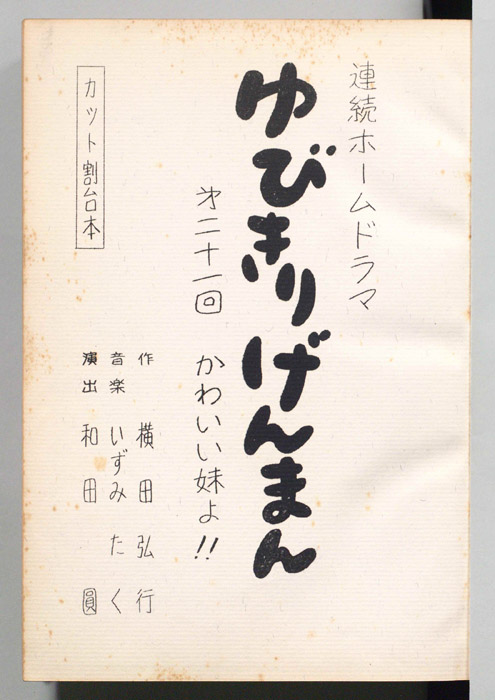 連続ホームドラマ
ゆびきりげんまん
才二十一回 かわいい妹よ!!
作 横田弘行
音楽 いずみたく
演出 和田圓
カット割台本